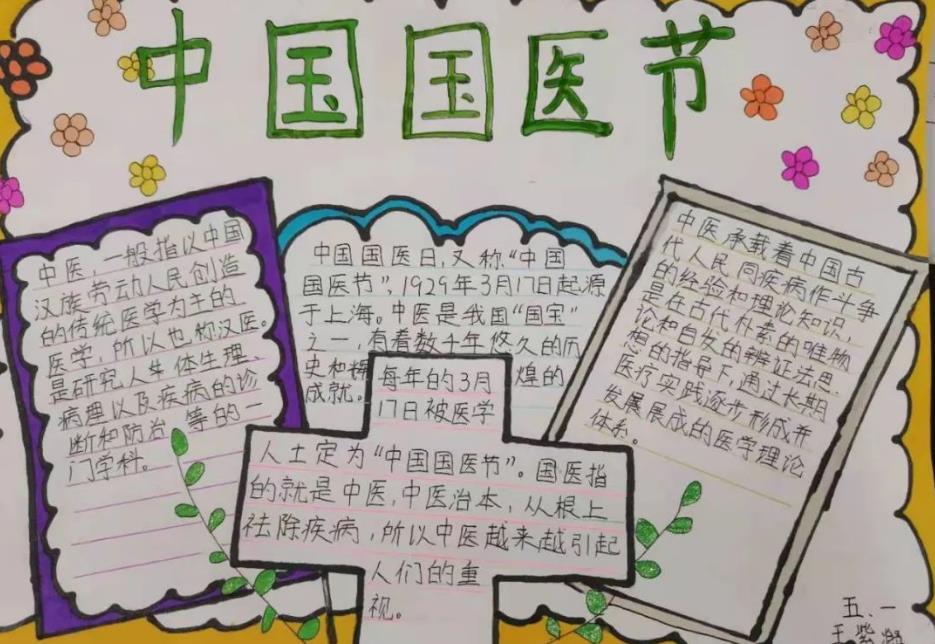 中国国医节
中医，一般指以中国
汉族劳动人民创造
的传统医学为主的
医学，所以也称汉医。
是研究人体生理、
病理以及疾病的诊
断和防治等的一
门学科。
中国国医日，又称“中国
国医节”，1929年3月17日起源
于上海。中医是我国“国宝”
之一，有着数千年悠久的历
史和辉煌的
成就。
每年的3月
17日被医学
人士定为“中国国医节”。国医指
的就是中医，中医治本，从根上
祛除疾病，所以中医越来越引起
人们的重
视。
中医承载着中国古
代人民同疾病作斗争
的经验和理论知识，
是在古代朴素的唯物
论和自发的辨证法思
想的指导下，通过长期
医疗实践逐步形成并
发展成的医学理论
体系。
五、一
王紫